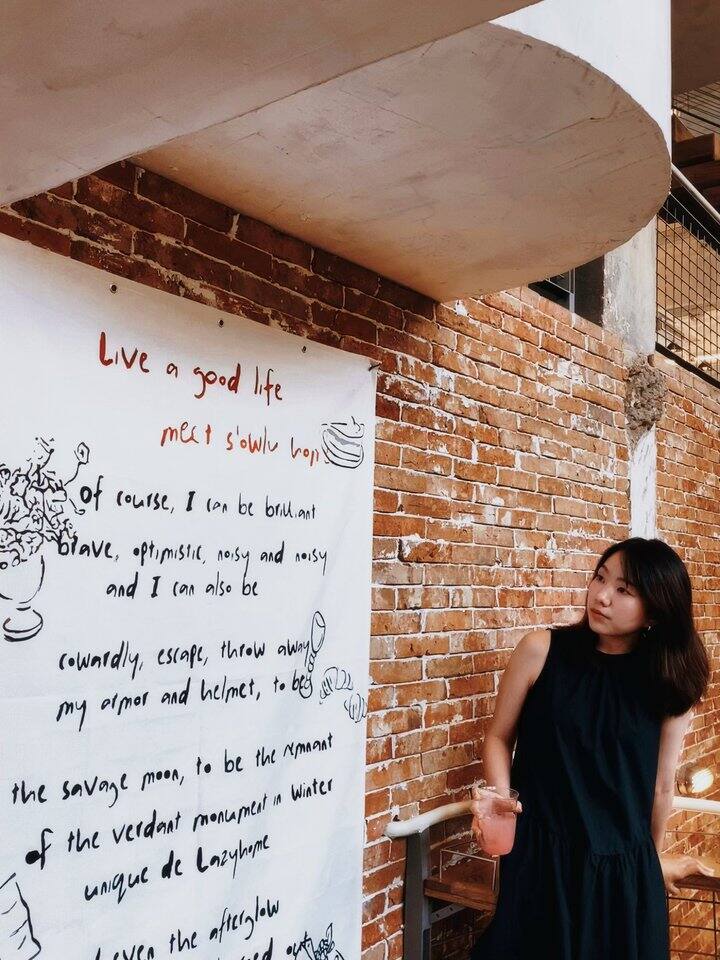 Live a good life
meet slowly
Of course, I can be brilliant
brave, optimistic, noisy and noisy
and I can also be
cowardly, escape, throw away
my armor and helmet, to be
the savage moon, to be the remnant
of the verdant monument in Winter
unique de Lazyhome
even the afterglow
out